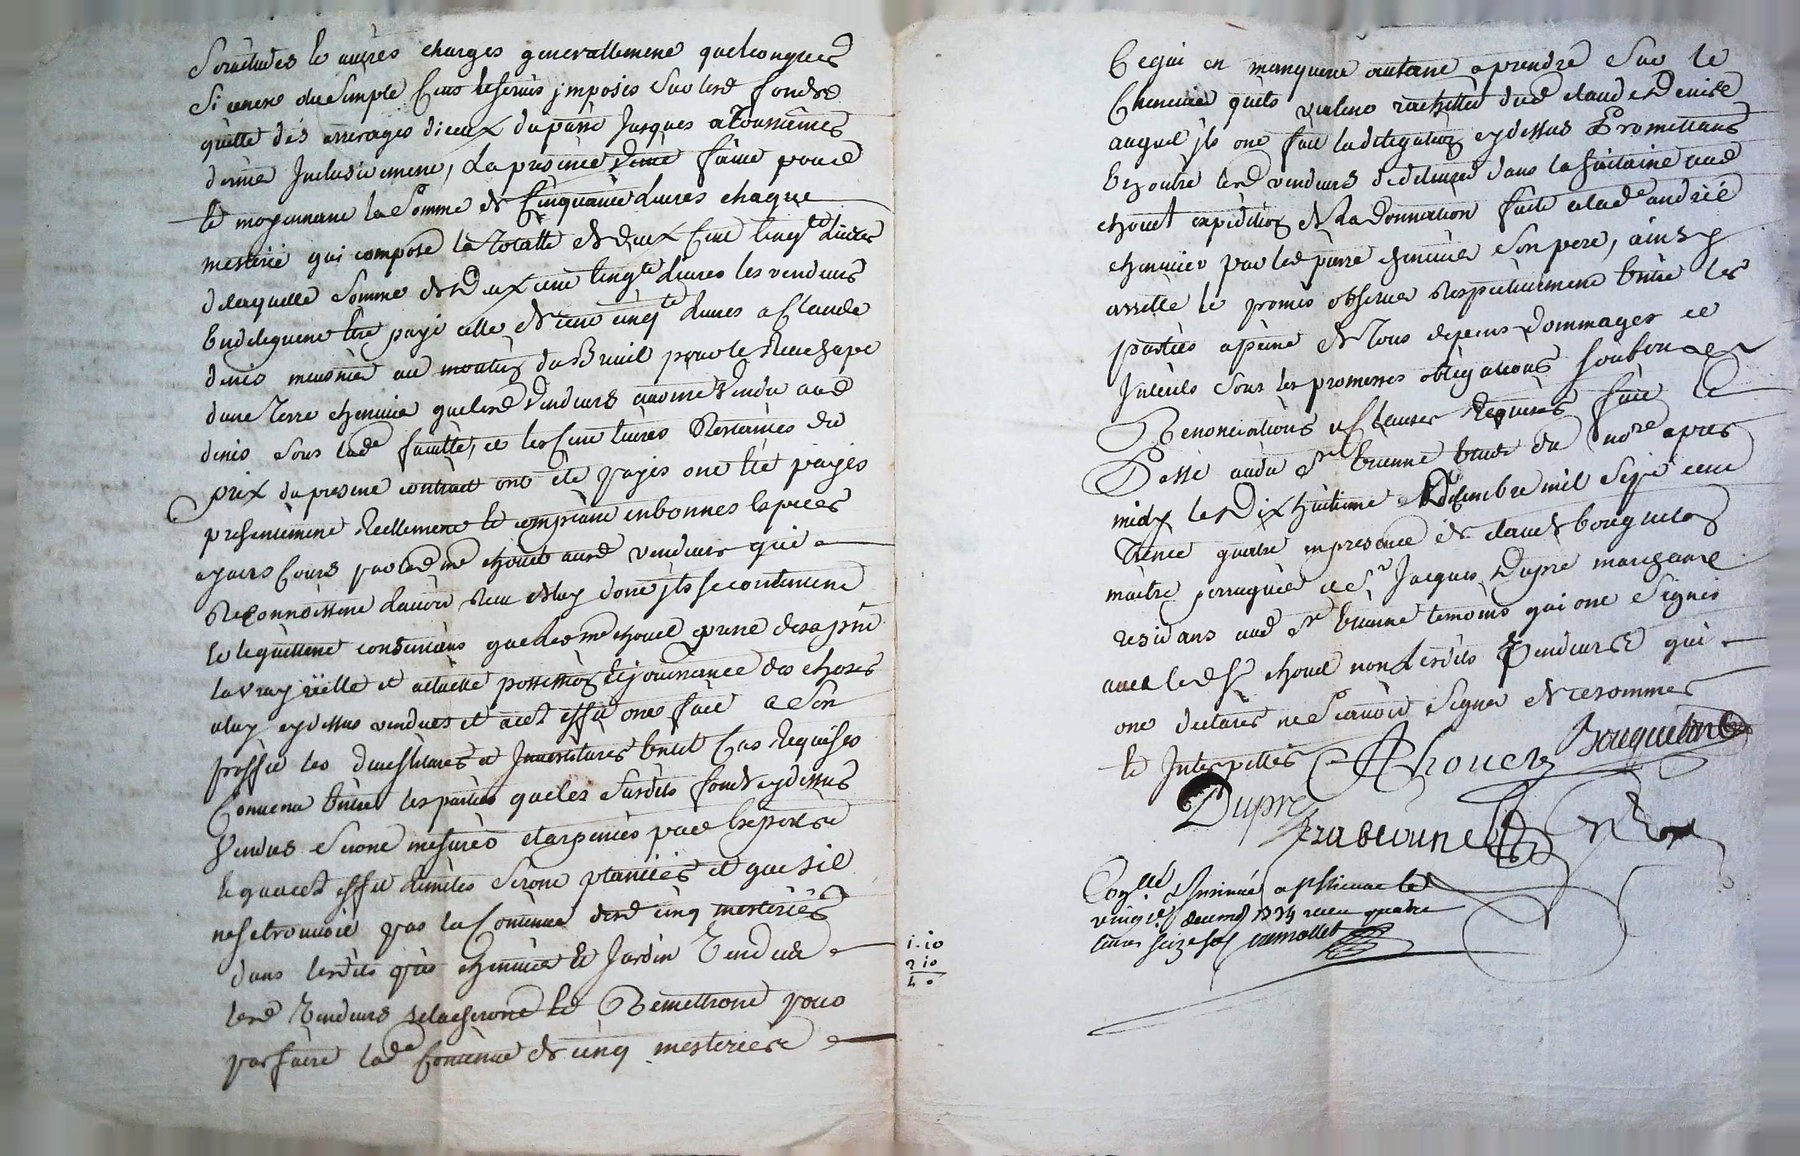 Servitudes et autres charges generallement quelconques
Si mene du simple Cens et servis imposés sur lesd fonds
quitte des arrerages diceux du passé jusques a Toussaints
derniere Inclusivement, La presente Vente faitte pour et
et moyennant la Somme de Cinquante Livres chaque
mesterié qui compose la Totalle de deux Cent Cinqte Livres
delaquelle Somme de deux cent Cinqte Livres les vendeurs
endeleguent être payé celle de cent cinqte Livres a Claude
denis meusnier au moulin du Breuil pour le Reachapt
dune Terre cheneviere que lesd Vendeurs avoint Vendu aud
denis sous lade faculté, et les Cent Livres Restantes du
prix du present contract ont été payés ont été payés
presentement Reellement et comptant en bonnes Especes
ayant Cours par led me chouet auxd vendeurs qui
Reconnoissent Lavoir Reçu de luy dont ils se contentent
et le quittent consentants que led me chouet prene des a pnt
la vraÿ réelle et actuelle possession et jouissance des choses
a luy cy dessus vendues et a cet effet ont fait a Son
proffit les devestitures et Investitures En tel Cas Requises
Convenu Entre les parties que les Susdits fonds cy dessus
Vendus Seront mesurés et arpentés par Experts
et qu'a cet effet Limites Seront plantées et que sil
ne se trouvoit pas la Contenue desd cinq mesteriés
dans lesdits prés cheneviere et Jardin Vendus
lesd Vendeurs relacheront et Remettront pour
parfaire lade Contenue de cinq mesteriés
1. 10
2 10
4 0
Ce qui en manquera autant a prendre Sur le
Cheneviere quils viennent rachetter dud claude Denis
auquel ils ont fait la delegation cy dessus Promettans
En outre lesd vendeurs de delivrer dans la huitaine aud
chouet expedition de La Donnation faite alade andrée
cheminier par led pierre cheminier Son pere, ainsy
arretté et promis observer Respectivement Entre les
parties a peine de Tous depens Dommages et
Interets Sous les promesses obligations Soub on
Renonciations et Clauses Requises fait et
Passé audit Sr Etienne Etude du nore apres
midy le Dix huitieme Decembre mil Sept cent
Trente quatre en presence de claude bouquelas
maitre perruquier et Sr Jacques Dupré marchand
residans aud Sr Etienne temoins qui ont Signés
avec led Sr chouet non Lesdits Vendeurs qui
ont declarés ne Scavoir Signer de ce sommés
et Interpellés Chouet Bouquelas
Dupré
Conllé Insinué a St Etienne le
vingt decembre 1734 reçu quatre
livres seize sols